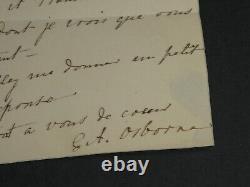 et
dont je crois que vous
ent —
lez me donner un petit
éponse
nt à vous de coeur
G. A. Osborne